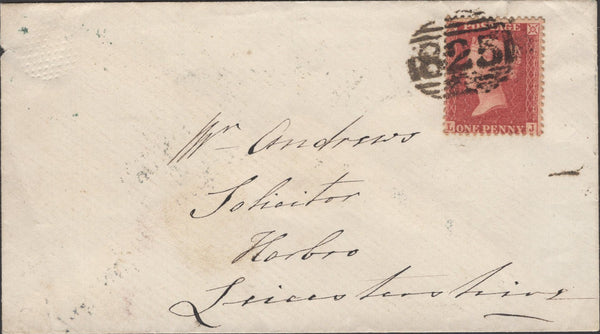 POSTAGE
825
ONE PENNY
L J
Mr Andrews
Solicitor
Harbro
Leicestershire